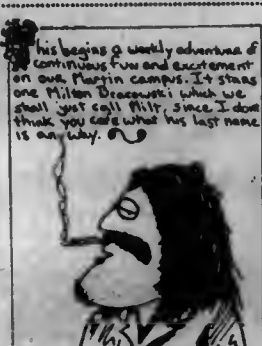 This begins a weekly adventure of
continuous fun and excitement
on our Martin campus. It stars
one Milton Dracowski which we
shall just call Milt, since I dont
think you care what his last name
is any way.